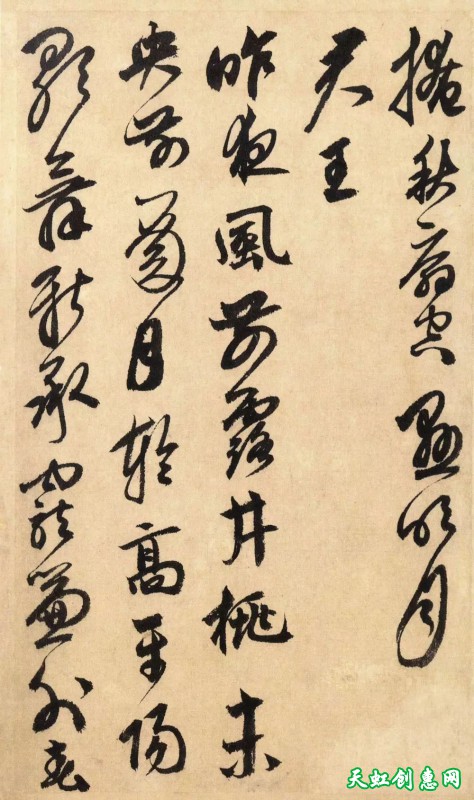 掩秋扇空懸明月
君王
昨夜風開露井桃未
央前殿月輪高平陽
歌舞新承寵簾外春
天虹创惠网